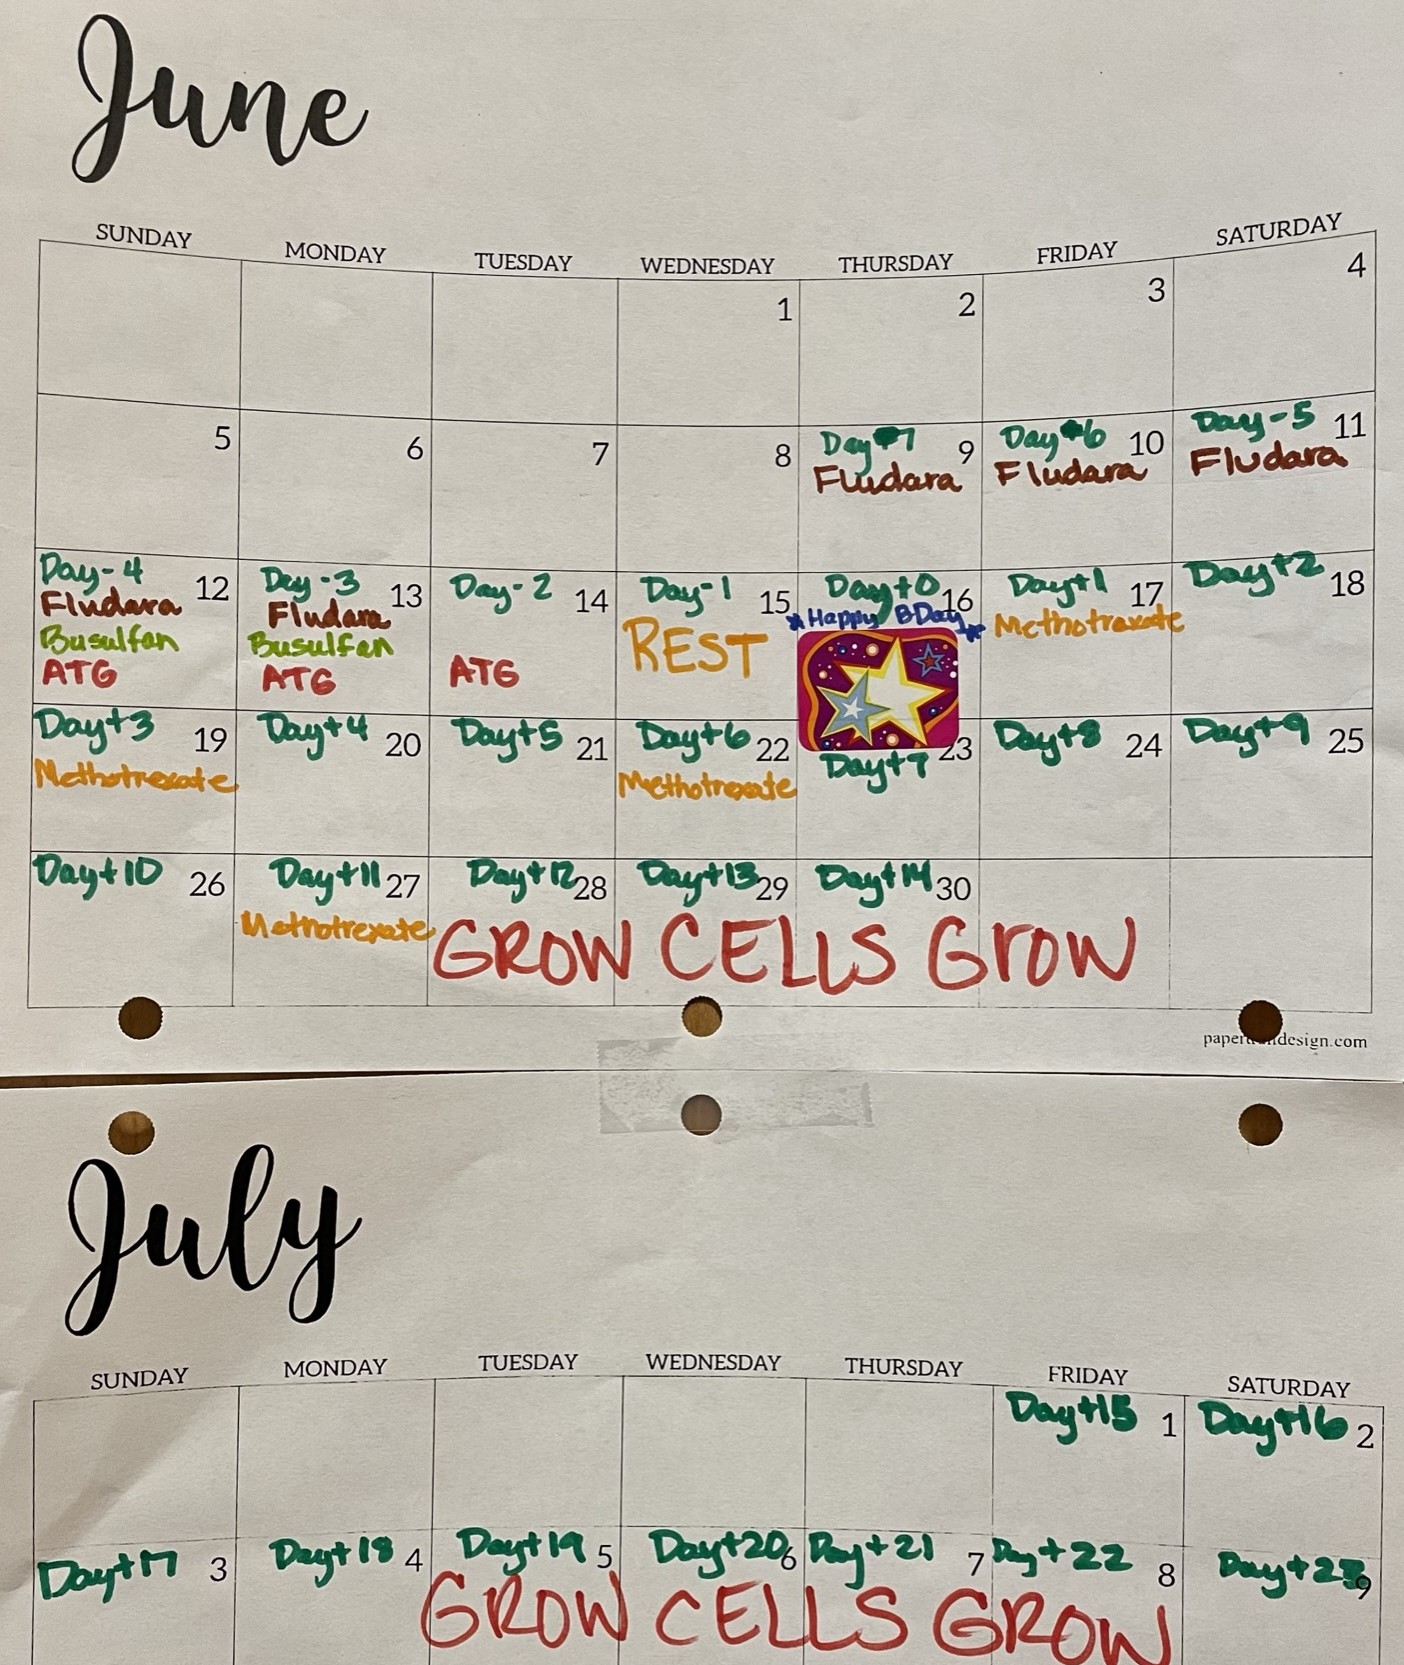 June
SUNDAY MONDAY TUESDAY WEDNESDAY THURSDAY FRIDAY SATURDAY
1 2 3 4
5 6 7 8
Day 7 9
Fludara
Day 6 10
Fludara
Day-5 11
Fludara
Day-4 12
Fludara
Busulfan
ATG
Day-3 13
Fludara
Busulfan
ATG
Day-2 14
ATG
Day-1 15
REST
Day+0 16
Happy BDay
Day+1 17
Methotraxate
Day+2 18
Day+3 19
Methotrexate
Day+4 20
Day+5 21
Day+6 22
Methotrexate
23
Day+7
Day+8 24
Day+9 25
Day+10 26
Day+11 27
Methotrexate
Day+12 28
Day+13 29
Day+14 30
GROW CELLS GrOW
design.com
July
SUNDAY MONDAY TUESDAY WEDNESDAY THURSDAY FRIDAY SATURDAY
Day+15 1
Day+16 2
Day+17 3
Day+18 4
Day+19 5
Day+20 6
Day+21 7
Day+22 8
Day+23 9
GROW CELLS GROW